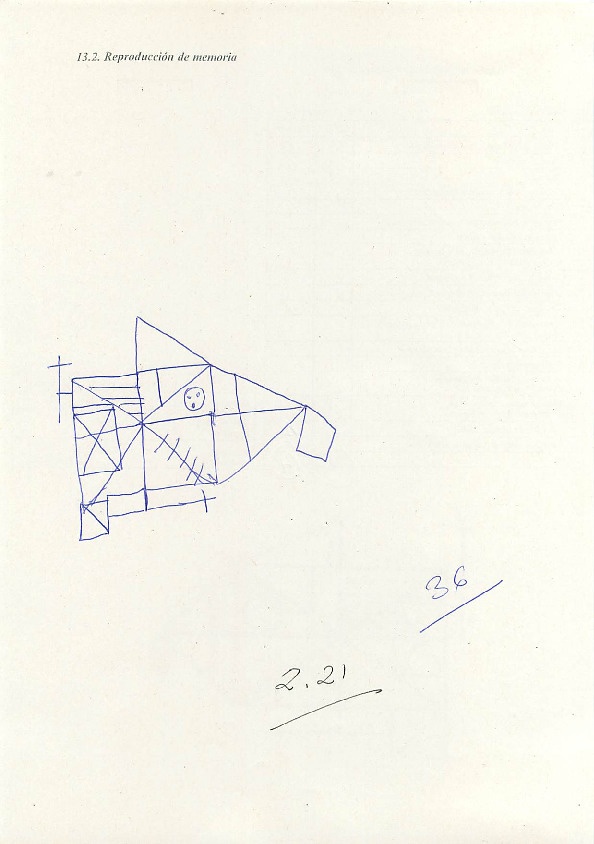 13.2. Reproducción de memoria
36
2.21